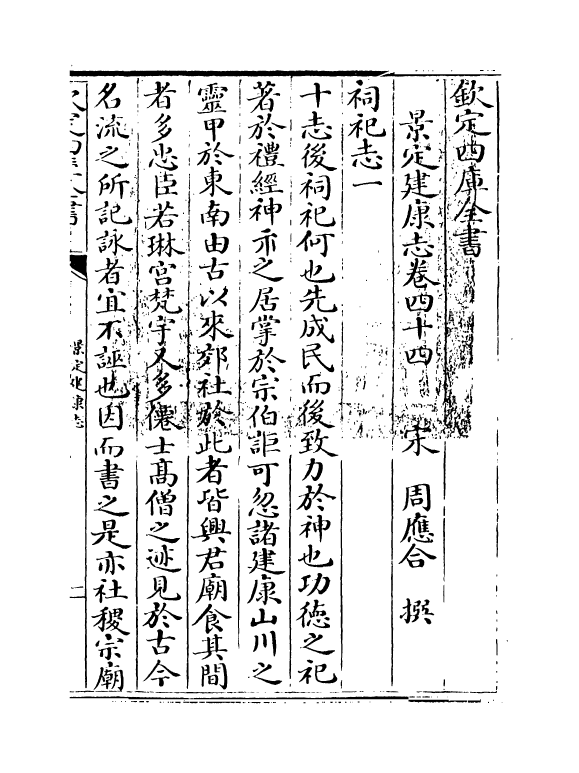 欽定四庫全書
景定建康志卷四十四 宋 周應合 撰
祠祀志一
十志後祠祀何也先成民而後致力於神也功徳之祀
著於禮經神示之居掌於宗伯詎可忽諸建康山川之
靈甲於東南由古以來郊社於此者皆興君廟食其間
者多忠臣若琳宫梵宇又多僊士髙僧之迹見於古今
名流之所記詠者宜不誣也因而書之是亦社稷宗廟
景定建康志